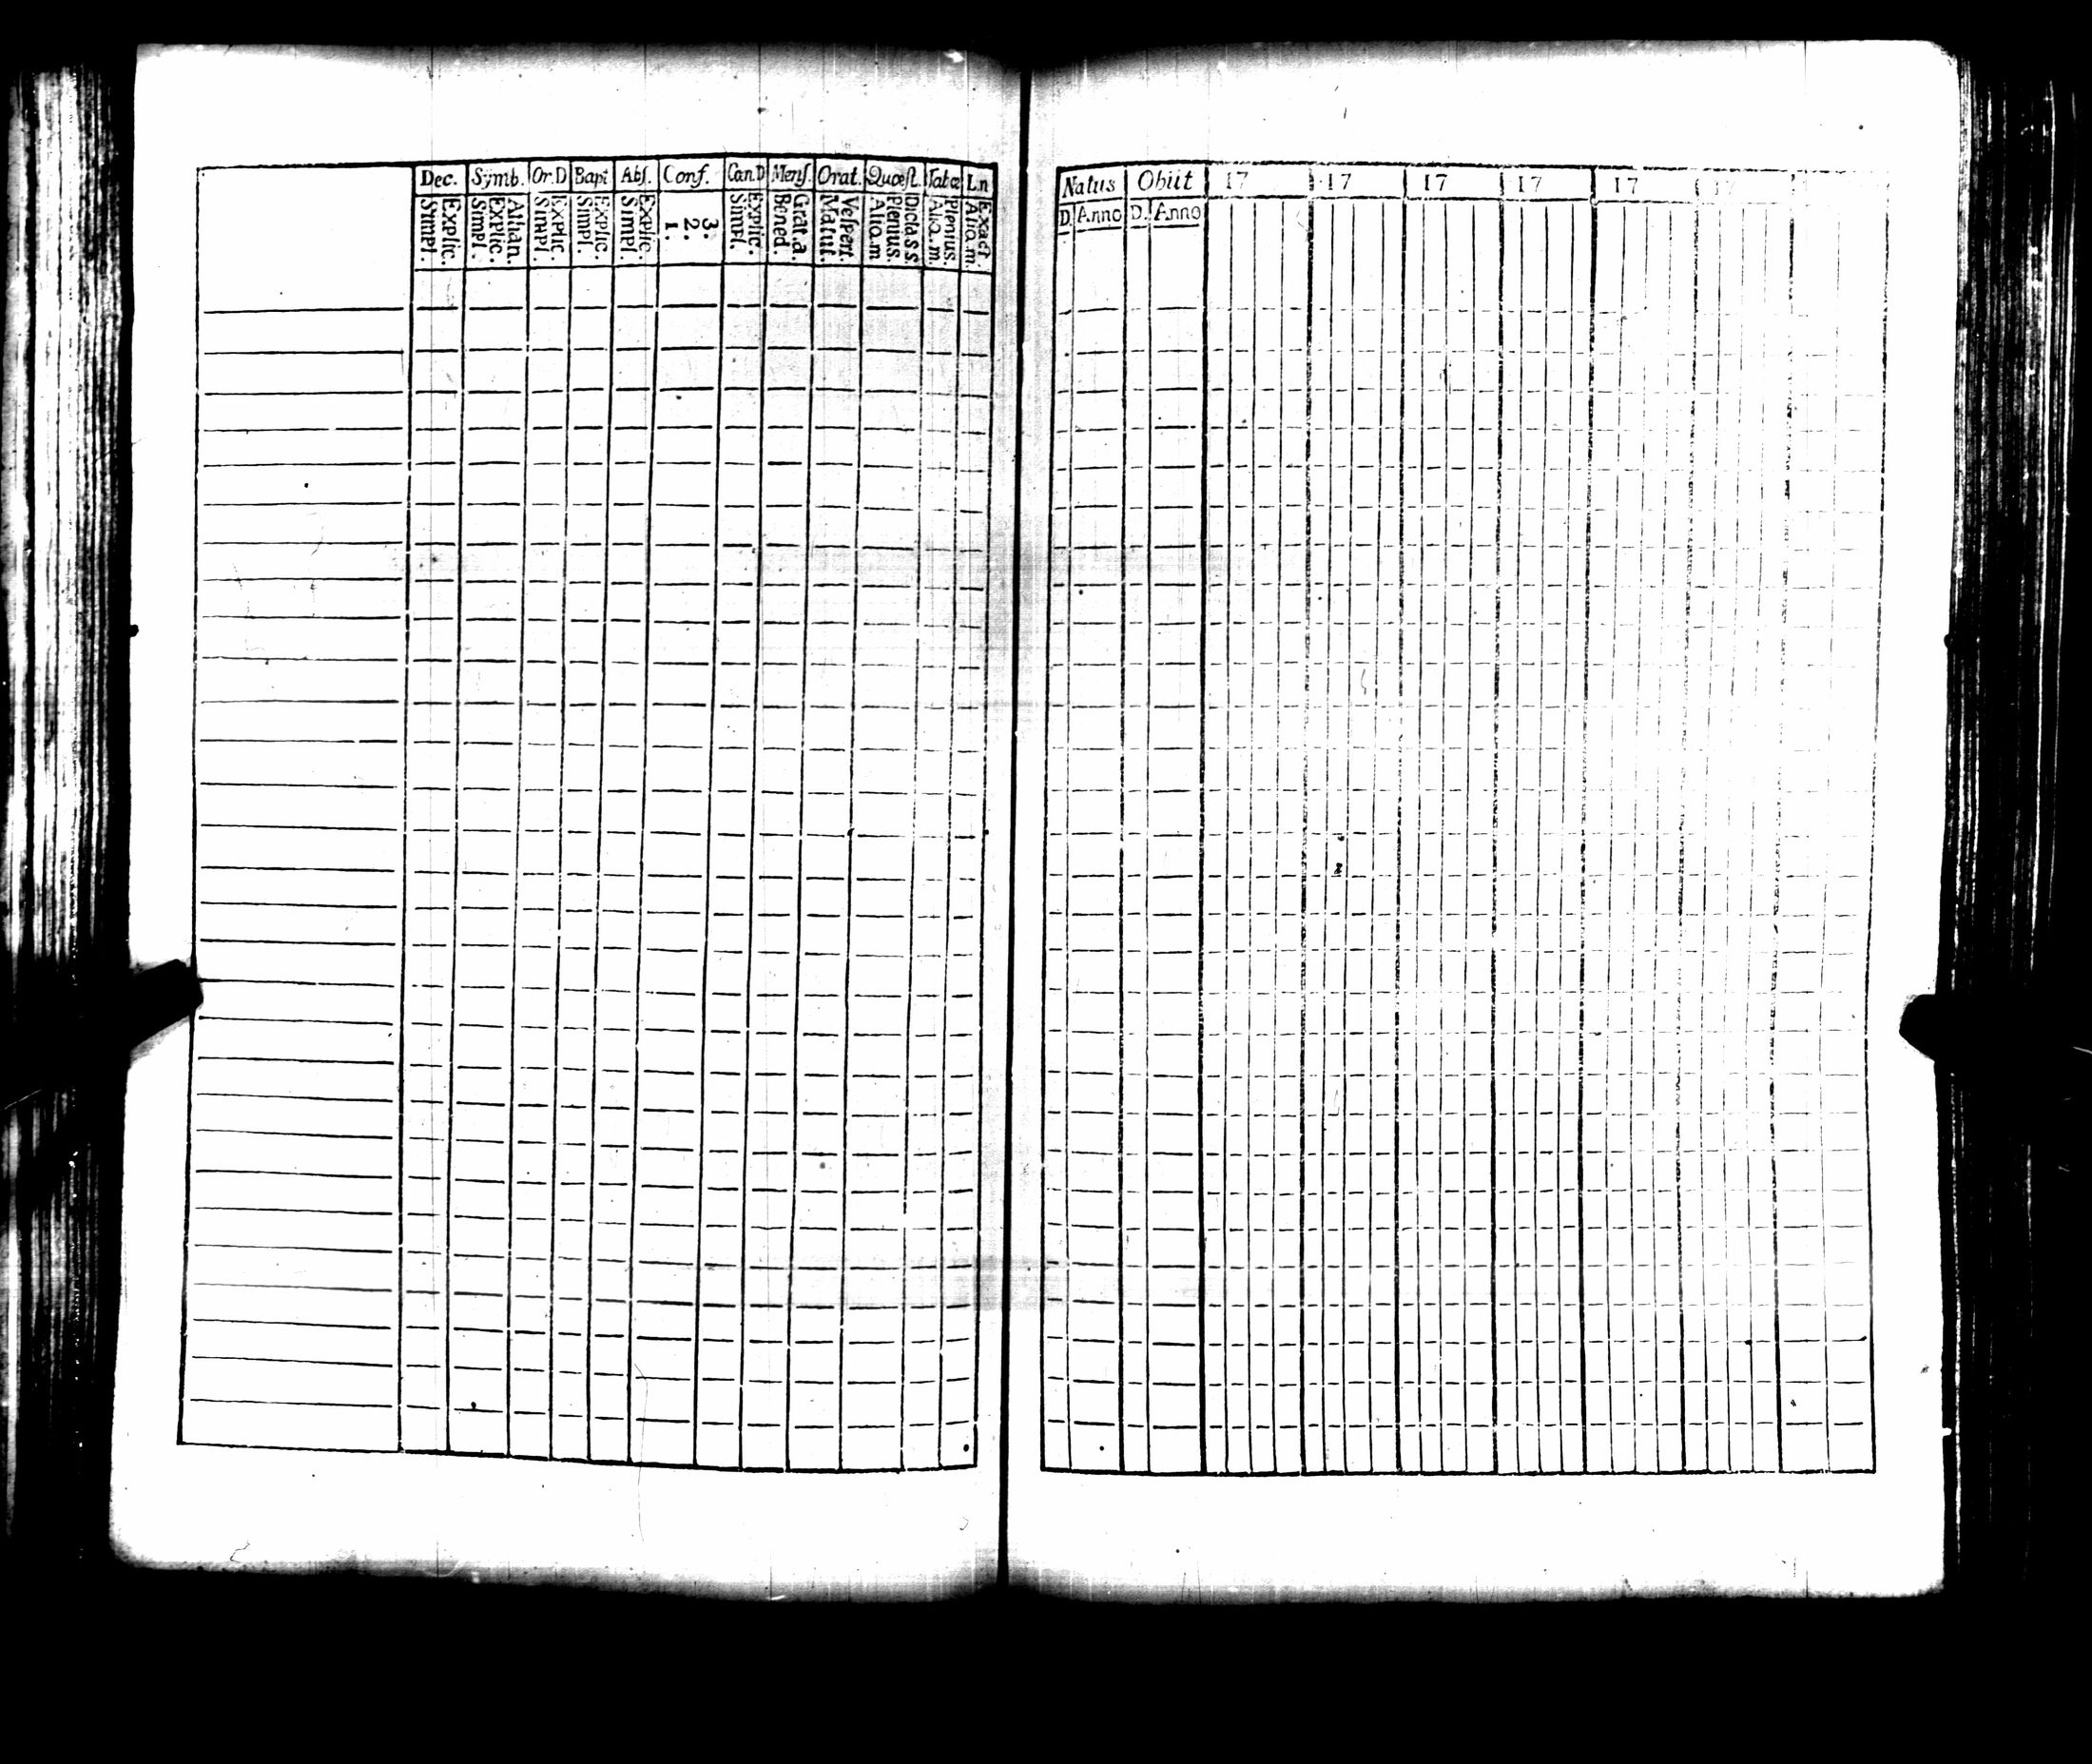 Dec. Symb. Or.D Bapt Abs. Conf. Can.D Mens. Orat. Quæst. Tabæ L.n
Explic. Simpl.
Athan. Explic. Simpl.
Explic. Simpl.
Explic. Simpl.
Explic. Simpl.
3. 2. 1.
Explic. Simpl.
Grat.a. Bened.
Vespert. Matut.
Dicta S S Plenius. Aliq.m
Plenius. Aliq.m.
Exact. Aliq.m.
Natus Obiit 17 17 17 17 17 17
D. Anno D. Anno